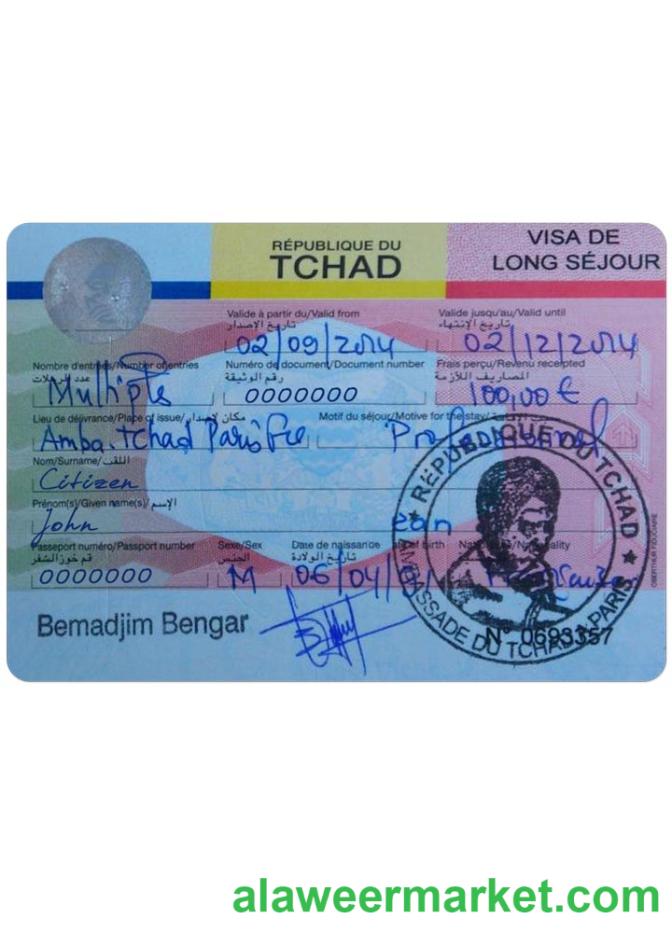 RÉPUBLIQUE DU
TCHAD
VISA DE
LONG SÉJOUR
Valide à partir du/Valid from
تاريخ الإصدار
02/09/2014
Valide jusqu'au/Valid until
تاريخ الإنتهاء
02/12/2014
Nombre d'entrées/Number of entries
عدد الرحلات
Multiple
Numéro de document/Document number
رقم الوثيقة
0000000
Frais perçu/Revenu receipted
المصاريف اللازمة
100,00 €
Lieu de délivrance/Place of issue/مكان الإصدار
Amba. Tchad Paris Fce
Motif du séjour/Motive for the stay/
Nom/Surname/اللقب
Citizen
Prénom(s)/Given name(s)/الإسم
John
ean
Passeport numéro/Passport number
0000000
Sexe/Sex
الجنس
M
Date de naissance
of birth
تاريخ الولادة
06/04/
Bemadjim Bengar
★ RÉPUBLIQUE DU TCHAD ★
AMBASSADE DU TCHAD À PARIS
N° 0693357
OBERTHUR FIDUCIAIRE
alaweermarket.com